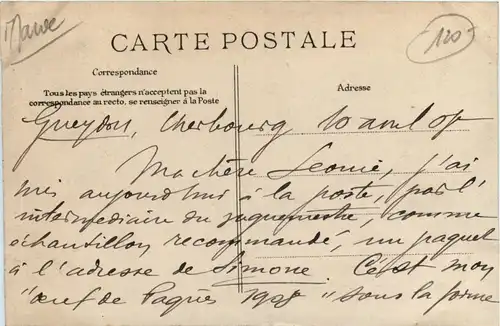 Manche
120
CARTE POSTALE
Correspondance
Tous les pays étrangers n'acceptent pas la
correspondance au recto, se renseigner à la Poste
Adresse
Gueydon, Cherbourg 10 avril 08
Ma chère Leonie, j'ai
mis aujourd'hui à la poste, par l'
intermediaire du vaguemestre, comme
échantillon recommandé, un paquet
à l'adresse de Simone. C'est mon
"œuf de Paques 1908" sous la forme